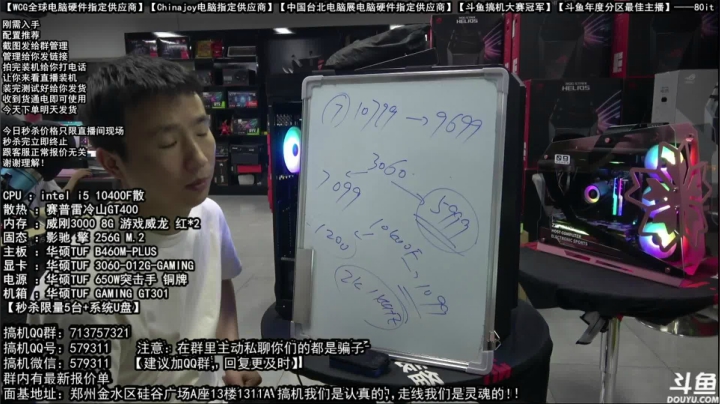 【WCG全球电脑硬件指定供应商】【Chinajoy电脑指定供应商】【中国台北电脑展电脑硬件指定供应商】【斗鱼搞机大赛冠军】【斗鱼年度分区最佳主播】——80it
刚需入手
配置推荐
截图发给群管理
管理给你发链接
拍完装机给你打电话
让你来看直播装机
装完测试好给你发货
收到货通电即可使用
今天下单明天发货
今日秒杀价格只限直播间现场
秒杀完立即终止
跟客服正常报价无关
谢谢理解!
CPU：intel i5 10400F散
散热：赛普雷冷山GT400
内存：威刚3000 8G 游戏威龙 红*2
固态：影驰 擎 256G M.2
主板：华硕TUF B460M-PLUS
显卡：华硕TUF 3060-O12G-GAMING
电源：华硕TUF 650W突击手 铜牌
机箱：华硕TUF GAMING GT301
【秒杀限量5台+系统U盘】
搞机QQ群：713757321
搞机QQ号：579311 注意：在群里主动私聊你们的都是骗子
搞机微信：579311 【建议加QQ群，回复更及时】
群内有最新报价单
面基地址：郑州金水区硅谷广场A座13楼1311A\搞机我们是认真的',走线我们是灵魂的!!
⑦ 10799→9699
3060
7099
5999
1200
10600F
1099
HELIOS
HELIOS
斗鱼
DOUYU.COM